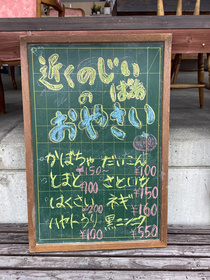 近くのじぃ
ばぁ
の
おやさい
かぼちゃ だいこん
¥150~ ¥100
とまと さといも
¥100 ¥150
はくさい ネギ
¥200 ¥160
ハヤトうり 黒ニンニク
¥100 ¥550